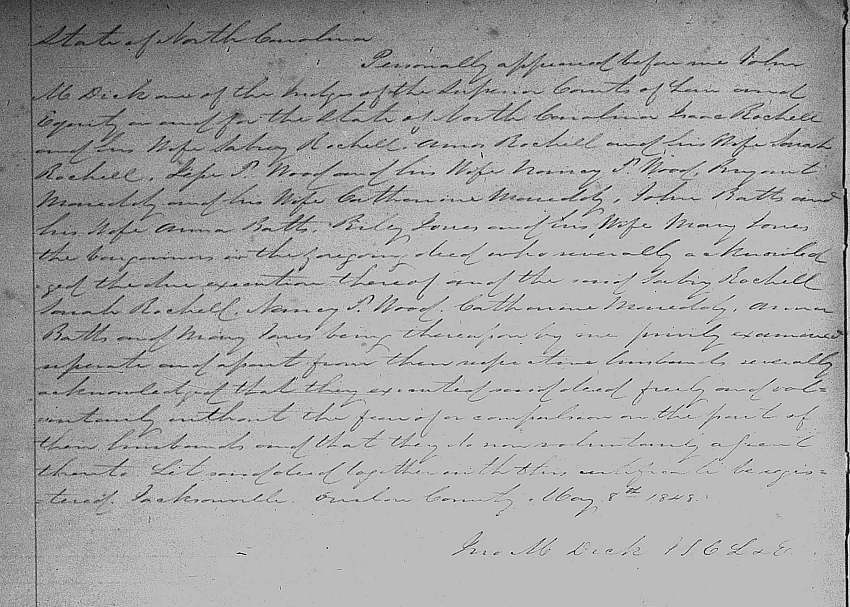 State of North Carolina
Personally appeared before me John
M Dick one of the Judges of the Superior Courts of Law and
Equity in and for the State of North Carolina Isaac Rochell
and his Wife Sabry Rochell, Amos Rochell and his Wife Sarah
Rochell, P. Wood and his Wife Nancy P. Wood, Bryant
and his Wife Catharine John Batts and
his Wife Anna Batts, Riley Jones and his Wife Mary Jones
the bargainors in the foregoing deed who severally acknowled
ged the due execution thereof and the said Sabry Rochell
Sarah Rochell, Nancy P. Wood, Catharine Anna
Batts and Mary Jones being thereupon by me privily examined
seperate and apart from their respective husbands severally
acknowledged that they executed said deed freely and vol=
untarily without the fear of or compulsion on the part of
their husbands and that they do now voluntarily assent
thereto Let said deed together with this certificate be regis=
=tered. Jacksonville Onslow County May 8th 1848.
Jno M Dick J S C L & E